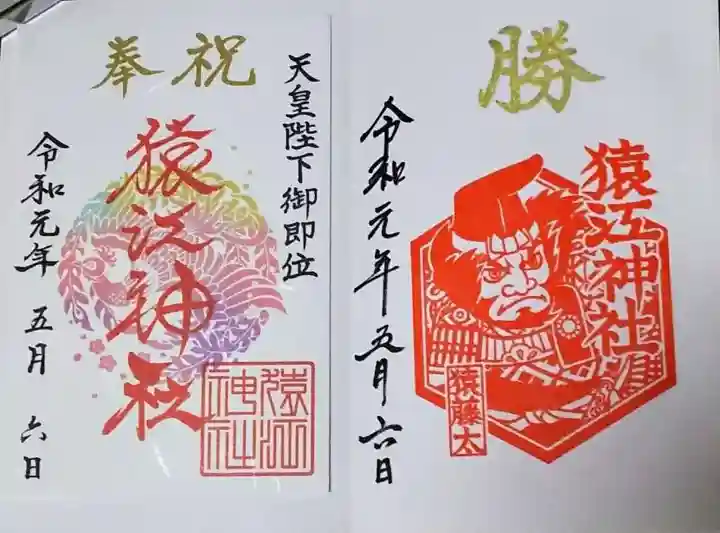 奉祝
天皇陛下御即位
猿江神社
令和元年 五月 六日
猿江神社
勝
猿江神社
猿藤太
令和元年五月六日